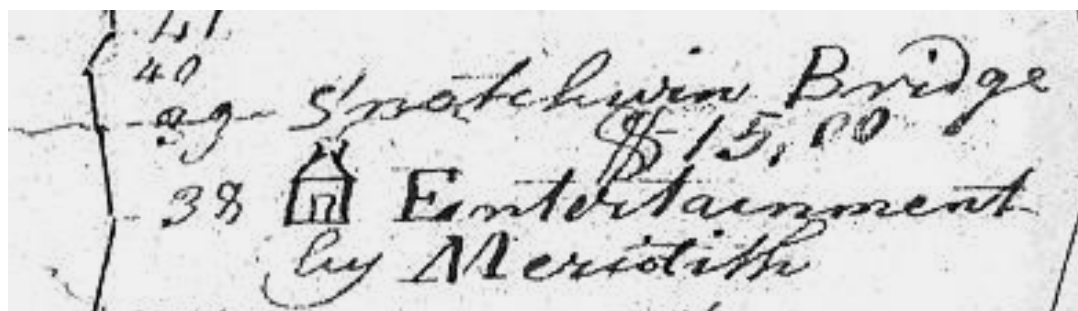 41
40
39 Snatchwin Bridge
$15,00
38 Entertainment
by Meridith